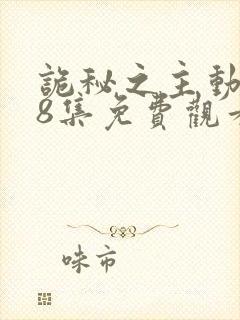 詭秘之主動
8集免費觀
味市